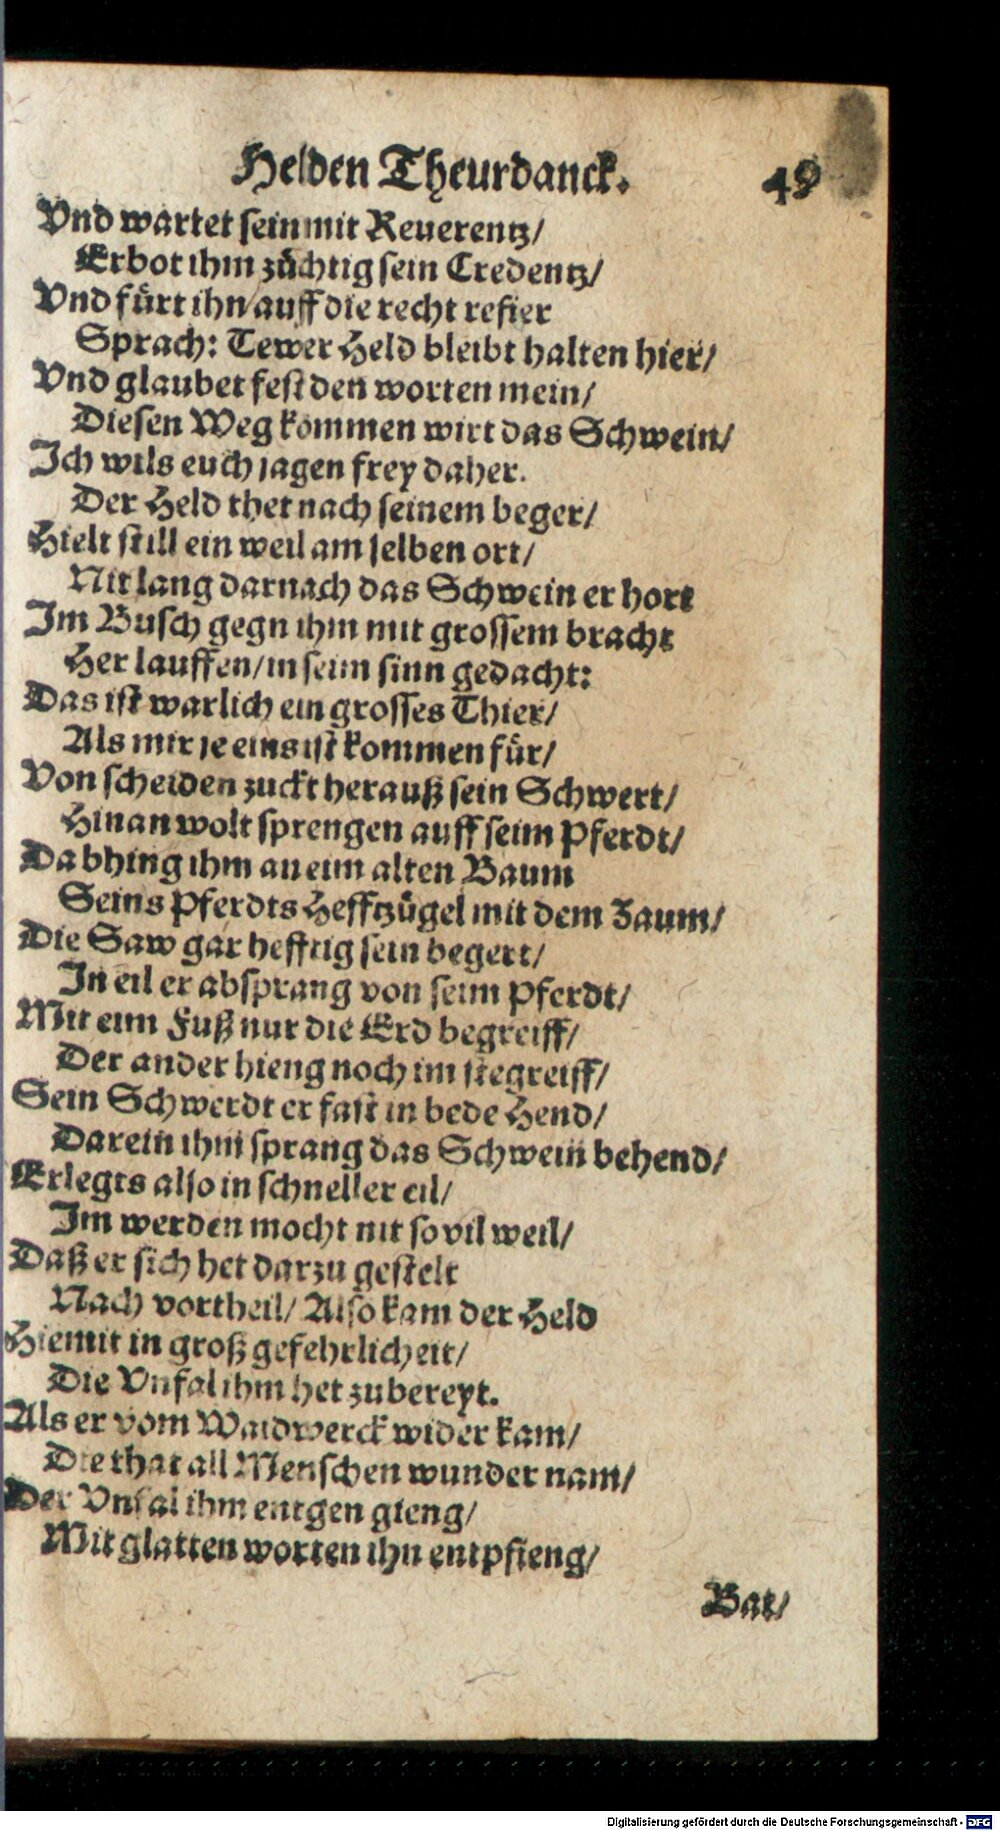 Helden Theurdanck. 49
Vnd wartet sein mit Reuerentz/
Erbot ihm züchtig sein Credentz/
Vnd fürt ihn auff die recht refier
Sprach: Tewer Held bleibt halten hier/
Vnd glaubet fest den worten mein/
Diesen Weg kommen wirt das Schwein/
Ich wils euch jagen frey daher.
Der Held thet nach seinem beger/
Hielt still ein weil am selben ort/
Nit lang darnach das Schwein er hort
Im Busch gegn ihm mit grossem bracht
Her lauffen/ in seim sinn gedacht:
Das ist warlich ein grosses Thier/
Als mir je eins ist kommen für/
Von scheiden zuckt herauß sein Schwert/
Hinan wolt sprengen auff seim Pferdt/
Da bhing ihm an eim alten Baum
Seins Pferdts Hefftzügel mit dem Zaum/
Die Saw gar hefftig sein begert/
In eil er absprang von seim Pferdt/
Mit eim Fuß nur die Erd begreiff/
Der ander hieng noch im stegreiff/
Sein Schwerdt er fast in bede Hend/
Darein ihm sprang das Schwein behend/
Erlegts also in schneller eil/
Im werden mocht nit so vil weil/
Daß er sich het darzu gestelt
Nach vortheil/ Also kam der Held
Hiemit in groß gefehrlicheit/
Die Vnfal ihm het zubereyt.
Als er vom Waidwerck wider kam/
Die that all Menschen wunder nam/
Der Vnfal ihm entgen gieng/
Mit glatten worten ihn entpfieng/
Bat/
Digitalisierung gefördert durch die Deutsche Forschungsgemeinschaft - DFG